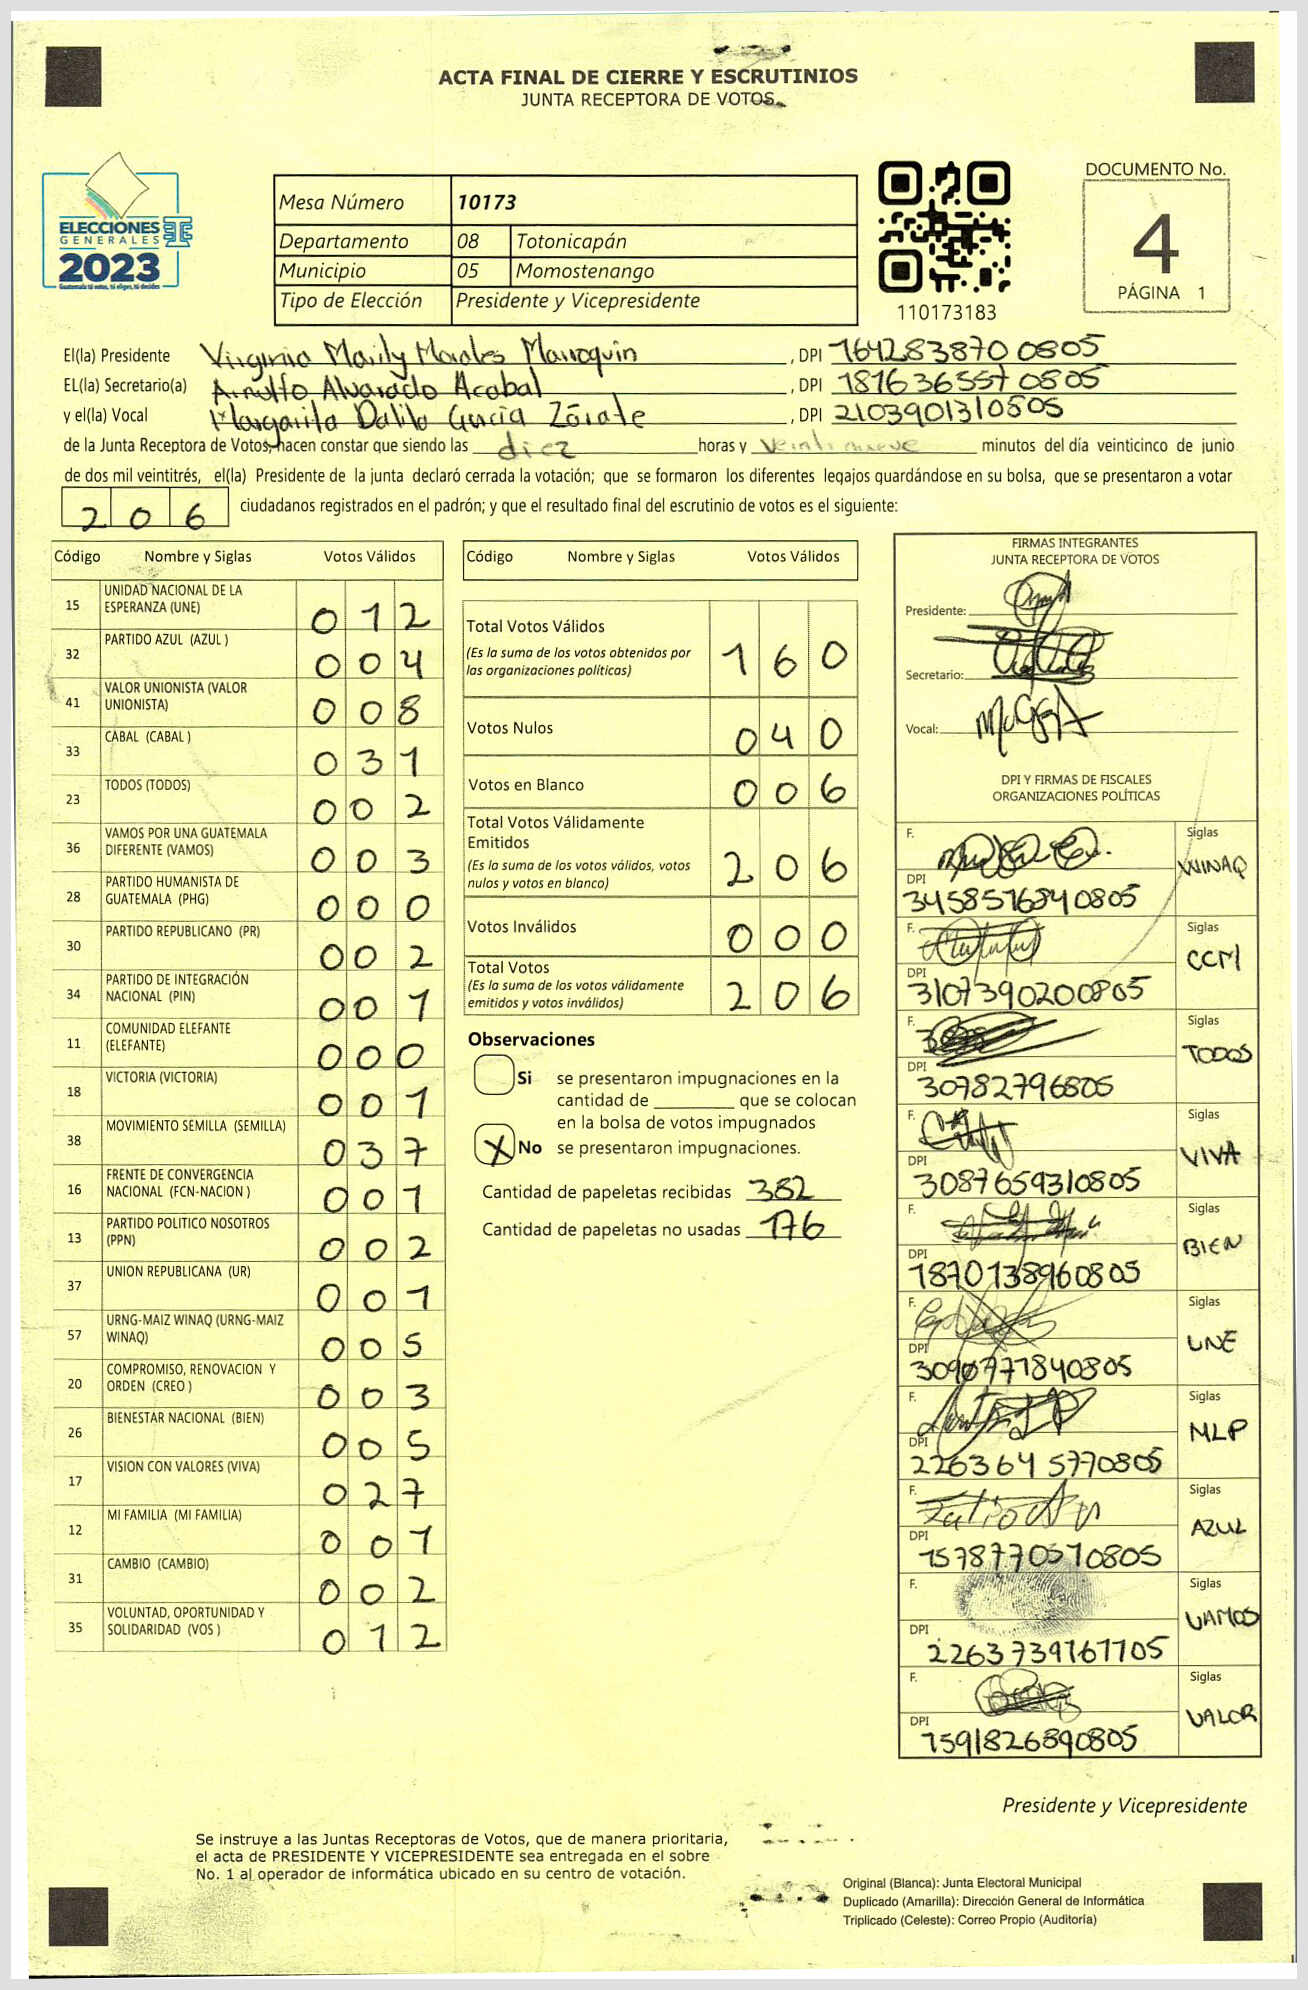 ACTA FINAL DE CIERRE Y ESCRUTINIOS
JUNTA RECEPTORA DE VOTOS
ELECCIONES
GENERALES
2023
Guatemala tú votas, tú eliges, tú decides
Mesa Número 10173
Departamento 08 Totonicapán
Municipio 05 Momostenango
Tipo de Elección Presidente y Vicepresidente
110173183
DOCUMENTO No.
4
PÁGINA 1
El(la) Presidente Virginia Maily Morales Marroquin, DPI 1642838700805
EL(la) Secretario(a) Arnulfo Alvarado Acabal, DPI 1816365570805
y el(la) Vocal Margarita Dalila García Zárate, DPI 2103901310805
de la Junta Receptora de Votos, hacen constar que siendo las diez horas y veintinueve minutos del día veinticinco de junio
de dos mil veintitrés, el(la) Presidente de la junta declaró cerrada la votación; que se formaron los diferentes legajos guardándose en su bolsa, que se presentaron a votar
206 ciudadanos registrados en el padrón; y que el resultado final del escrutinio de votos es el siguiente:
Código Nombre y Siglas Votos Válidos
15 UNIDAD NACIONAL DE LA ESPERANZA (UNE) 012
32 PARTIDO AZUL (AZUL ) 004
41 VALOR UNIONISTA (VALOR UNIONISTA) 008
33 CABAL (CABAL ) 031
23 TODOS (TODOS) 002
36 VAMOS POR UNA GUATEMALA DIFERENTE (VAMOS) 003
28 PARTIDO HUMANISTA DE GUATEMALA (PHG) 000
30 PARTIDO REPUBLICANO (PR) 002
34 PARTIDO DE INTEGRACIÓN NACIONAL (PIN) 001
11 COMUNIDAD ELEFANTE (ELEFANTE) 000
18 VICTORIA (VICTORIA) 001
38 MOVIMIENTO SEMILLA (SEMILLA) 037
16 FRENTE DE CONVERGENCIA NACIONAL (FCN-NACION ) 001
13 PARTIDO POLITICO NOSOTROS (PPN) 002
37 UNION REPUBLICANA (UR) 001
57 URNG-MAIZ WINAQ (URNG-MAIZ WINAQ) 005
20 COMPROMISO, RENOVACION Y ORDEN (CREO ) 003
26 BIENESTAR NACIONAL (BIEN) 005
17 VISION CON VALORES (VIVA) 027
12 MI FAMILIA (MI FAMILIA) 001
31 CAMBIO (CAMBIO) 002
35 VOLUNTAD, OPORTUNIDAD Y SOLIDARIDAD (VOS ) 012
Código Nombre y Siglas Votos Válidos
Total Votos Válidos 160
(Es la suma de los votos obtenidos por
las organizaciones políticas)
Votos Nulos 040
Votos en Blanco 006
Total Votos Válidamente
Emitidos 206
(Es la suma de los votos válidos, votos
nulos y votos en blanco)
Votos Inválidos 000
Total Votos 206
(Es la suma de los votos válidamente
emitidos y votos inválidos)
Observaciones
Si se presentaron impugnaciones en la
cantidad de ________ que se colocan
en la bolsa de votos impugnados
X No se presentaron impugnaciones.
Cantidad de papeletas recibidas 382
Cantidad de papeletas no usadas 176
FIRMAS INTEGRANTES
JUNTA RECEPTORA DE VOTOS
Presidente:
Secretario:
Vocal:
DPI Y FIRMAS DE FISCALES
ORGANIZACIONES POLÍTICAS
F. Siglas WINAQ
DPI 3458516840805
F. Siglas CCM
DPI 3107390200805
F. Siglas TODOS
DPI 30782796805
F. Siglas VIVA
DPI 3087659310805
F. Siglas BIEN
DPI 1870138960805
F. Siglas UNE
DPI 3090771840805
F. Siglas MLP
DPI 2263645770805
F. Siglas AZUL
DPI 1578770570805
F. Siglas VAMOS
DPI 2263739161705
F. Siglas VALOR
DPI 1591826890805
Presidente y Vicepresidente
Se instruye a las Juntas Receptoras de Votos, que de manera prioritaria,
el acta de PRESIDENTE Y VICEPRESIDENTE sea entregada en el sobre
No. 1 al operador de informática ubicado en su centro de votación.
Original (Blanca): Junta Electoral Municipal
Duplicado (Amarilla): Dirección General de Informática
Triplicado (Celeste): Correo Propio (Auditoría)